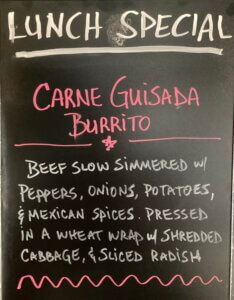 LUNCH SPECIAL
CARNE GUISADA
BURRITO
BEEF SLOW SIMMERED W/
PEPPERS, ONIONS, POTATOES,
& MEXICAN SPICES. PRESSED
IN A WHEAT WRAP W/ SHREDDED
CABBAGE, & SLICED RADISH